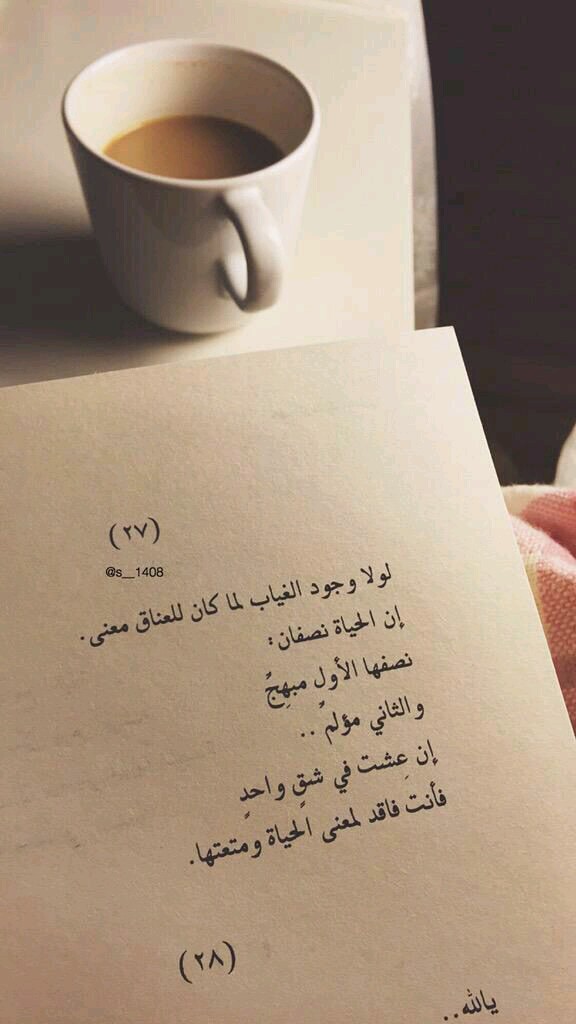 (٢٧)
@s__1408
لولا وجود الغياب لما كان للعناق معنى.
إن الحياة نصفان:
نصفها الأول مبهِجٌ
والثاني مؤلمٌ ..
إن عِشت في شقٍ واحدٍ
فأنت فاقد لمعنى الحياة ومتعتها.
(٢٨)
يالله..